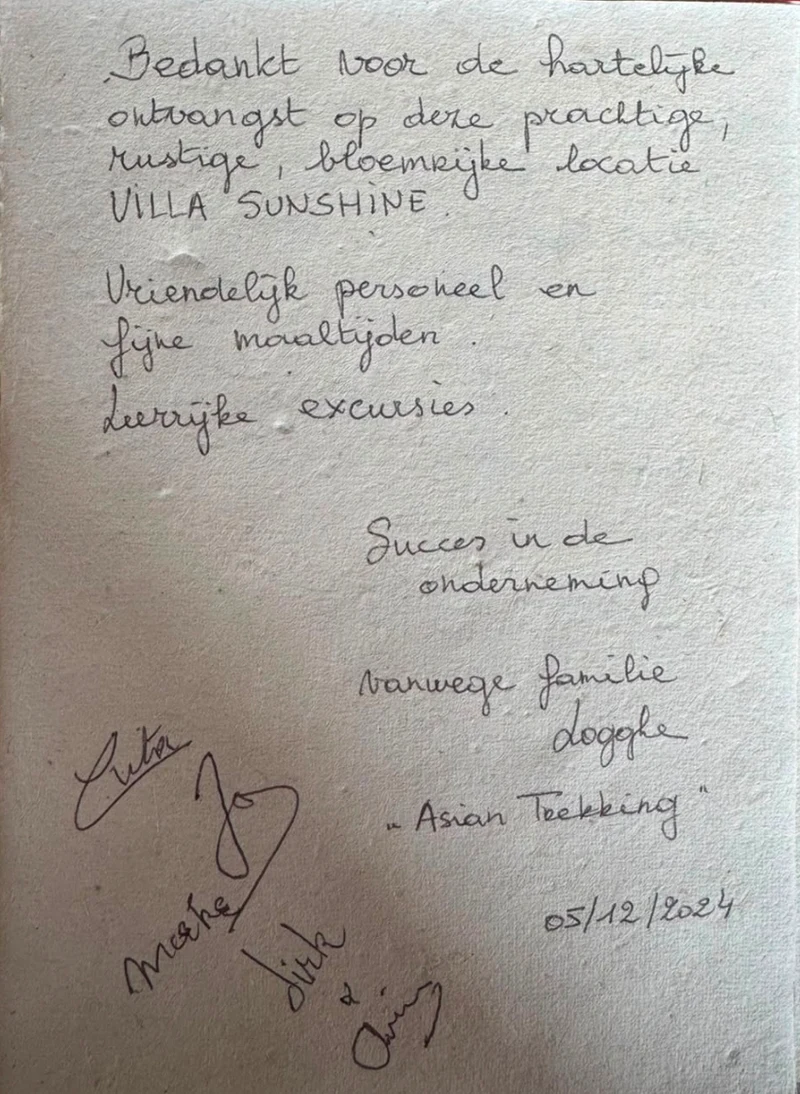 Bedankt voor de hartelijke
ontvangst op deze prachtige,
rustige, bloemrijke locatie
VILLA SUNSHINE.
Vriendelijk personeel en
fijne maaltijden.
Leerrijke excursies.
Succes in de
onderneming
vanwege familie
Logghe
"Asian Trekking"
05/12/2024
Jos
Dirk
&